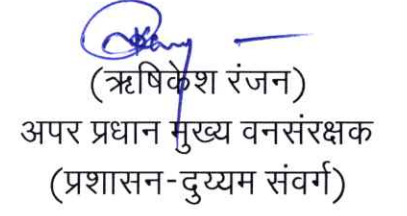 (ऋषिकेश रंजन)
अपर प्रधान मुख्य वनसंरक्षक
(प्रशासन-दुय्यम संवर्ग)